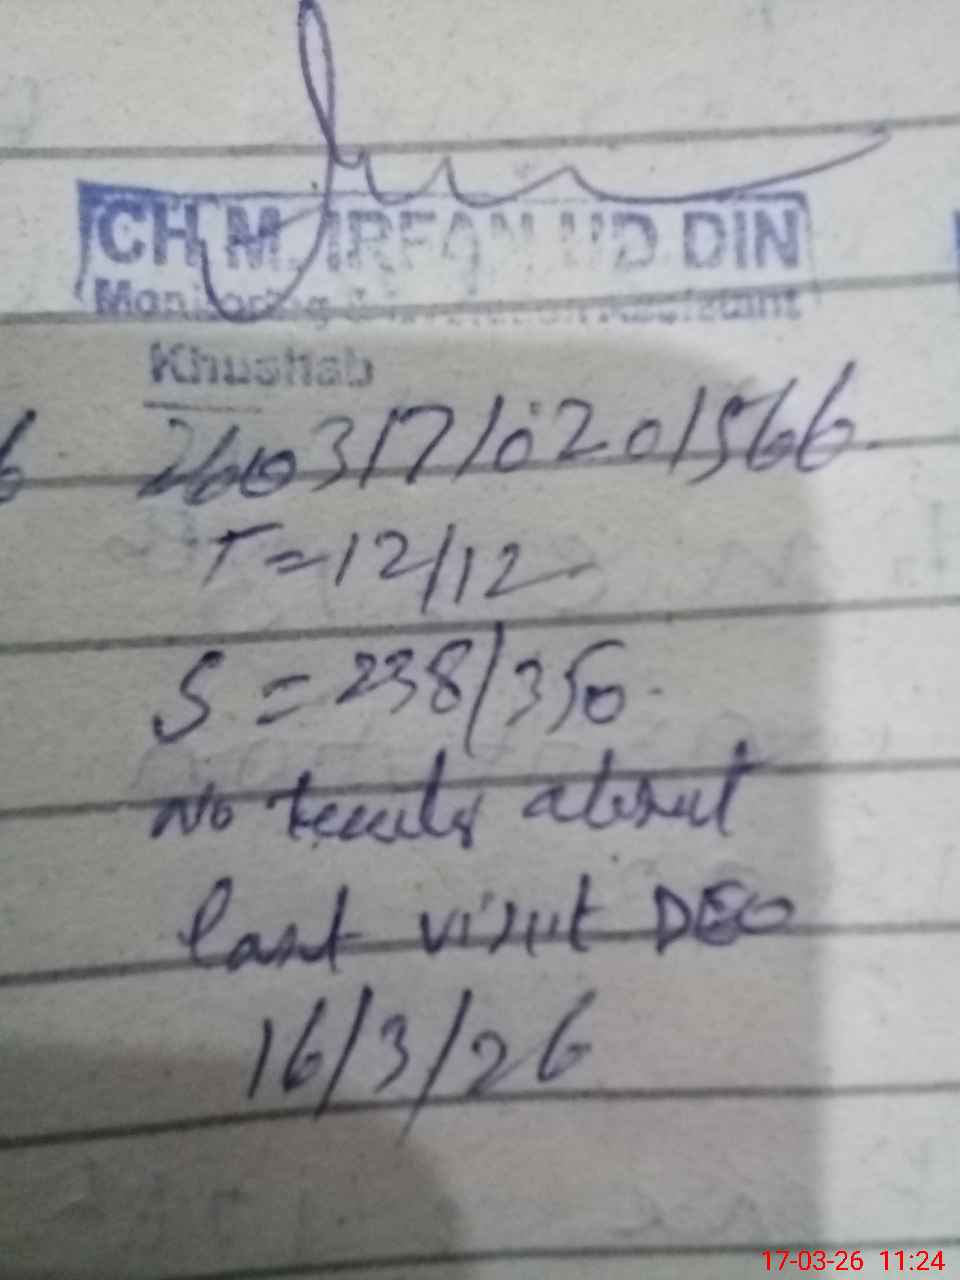 CH M. IRFAN UD DIN
Monitoring & Assistant
Khushab
260317/0201566
T = 12/12
S = 238/350
No absent
last visit DEO
16/3/26
17-03-26 11:24